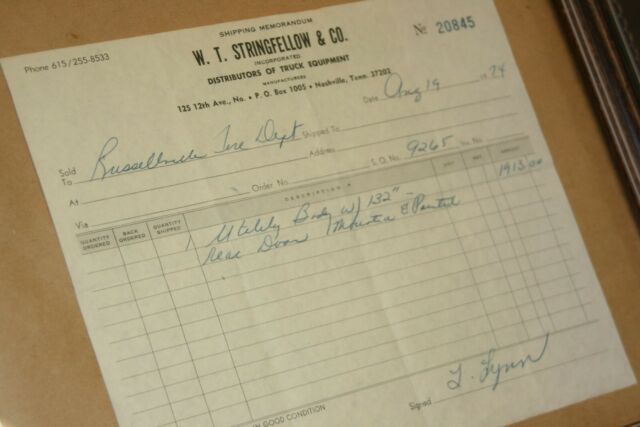 SHIPPING MEMORANDUM
Phone 615/255-8533
W. T. STRINGFELLOW & CO.
No 20845
INCORPORATED
DISTRIBUTORS OF TRUCK EQUIPMENT
MANUFACTURERS
125 12th Ave., No. • P. O. Box 1005 • Nashville, Tenn. 37202
Date Aug 19 1974
Sold To Russellville Fire Dept Shipped To
At Address
Via Order No. S. O. No. 9265 Inv. No.
QUANTITY ORDERED BACK ORDERED QUANTITY SHIPPED DESCRIPTION UNIT NET AMOUNT
1 Utility Body w/ 132" - 1913.00
Rear Door Mounted & Painted
IN GOOD CONDITION
Signed L. Flynn